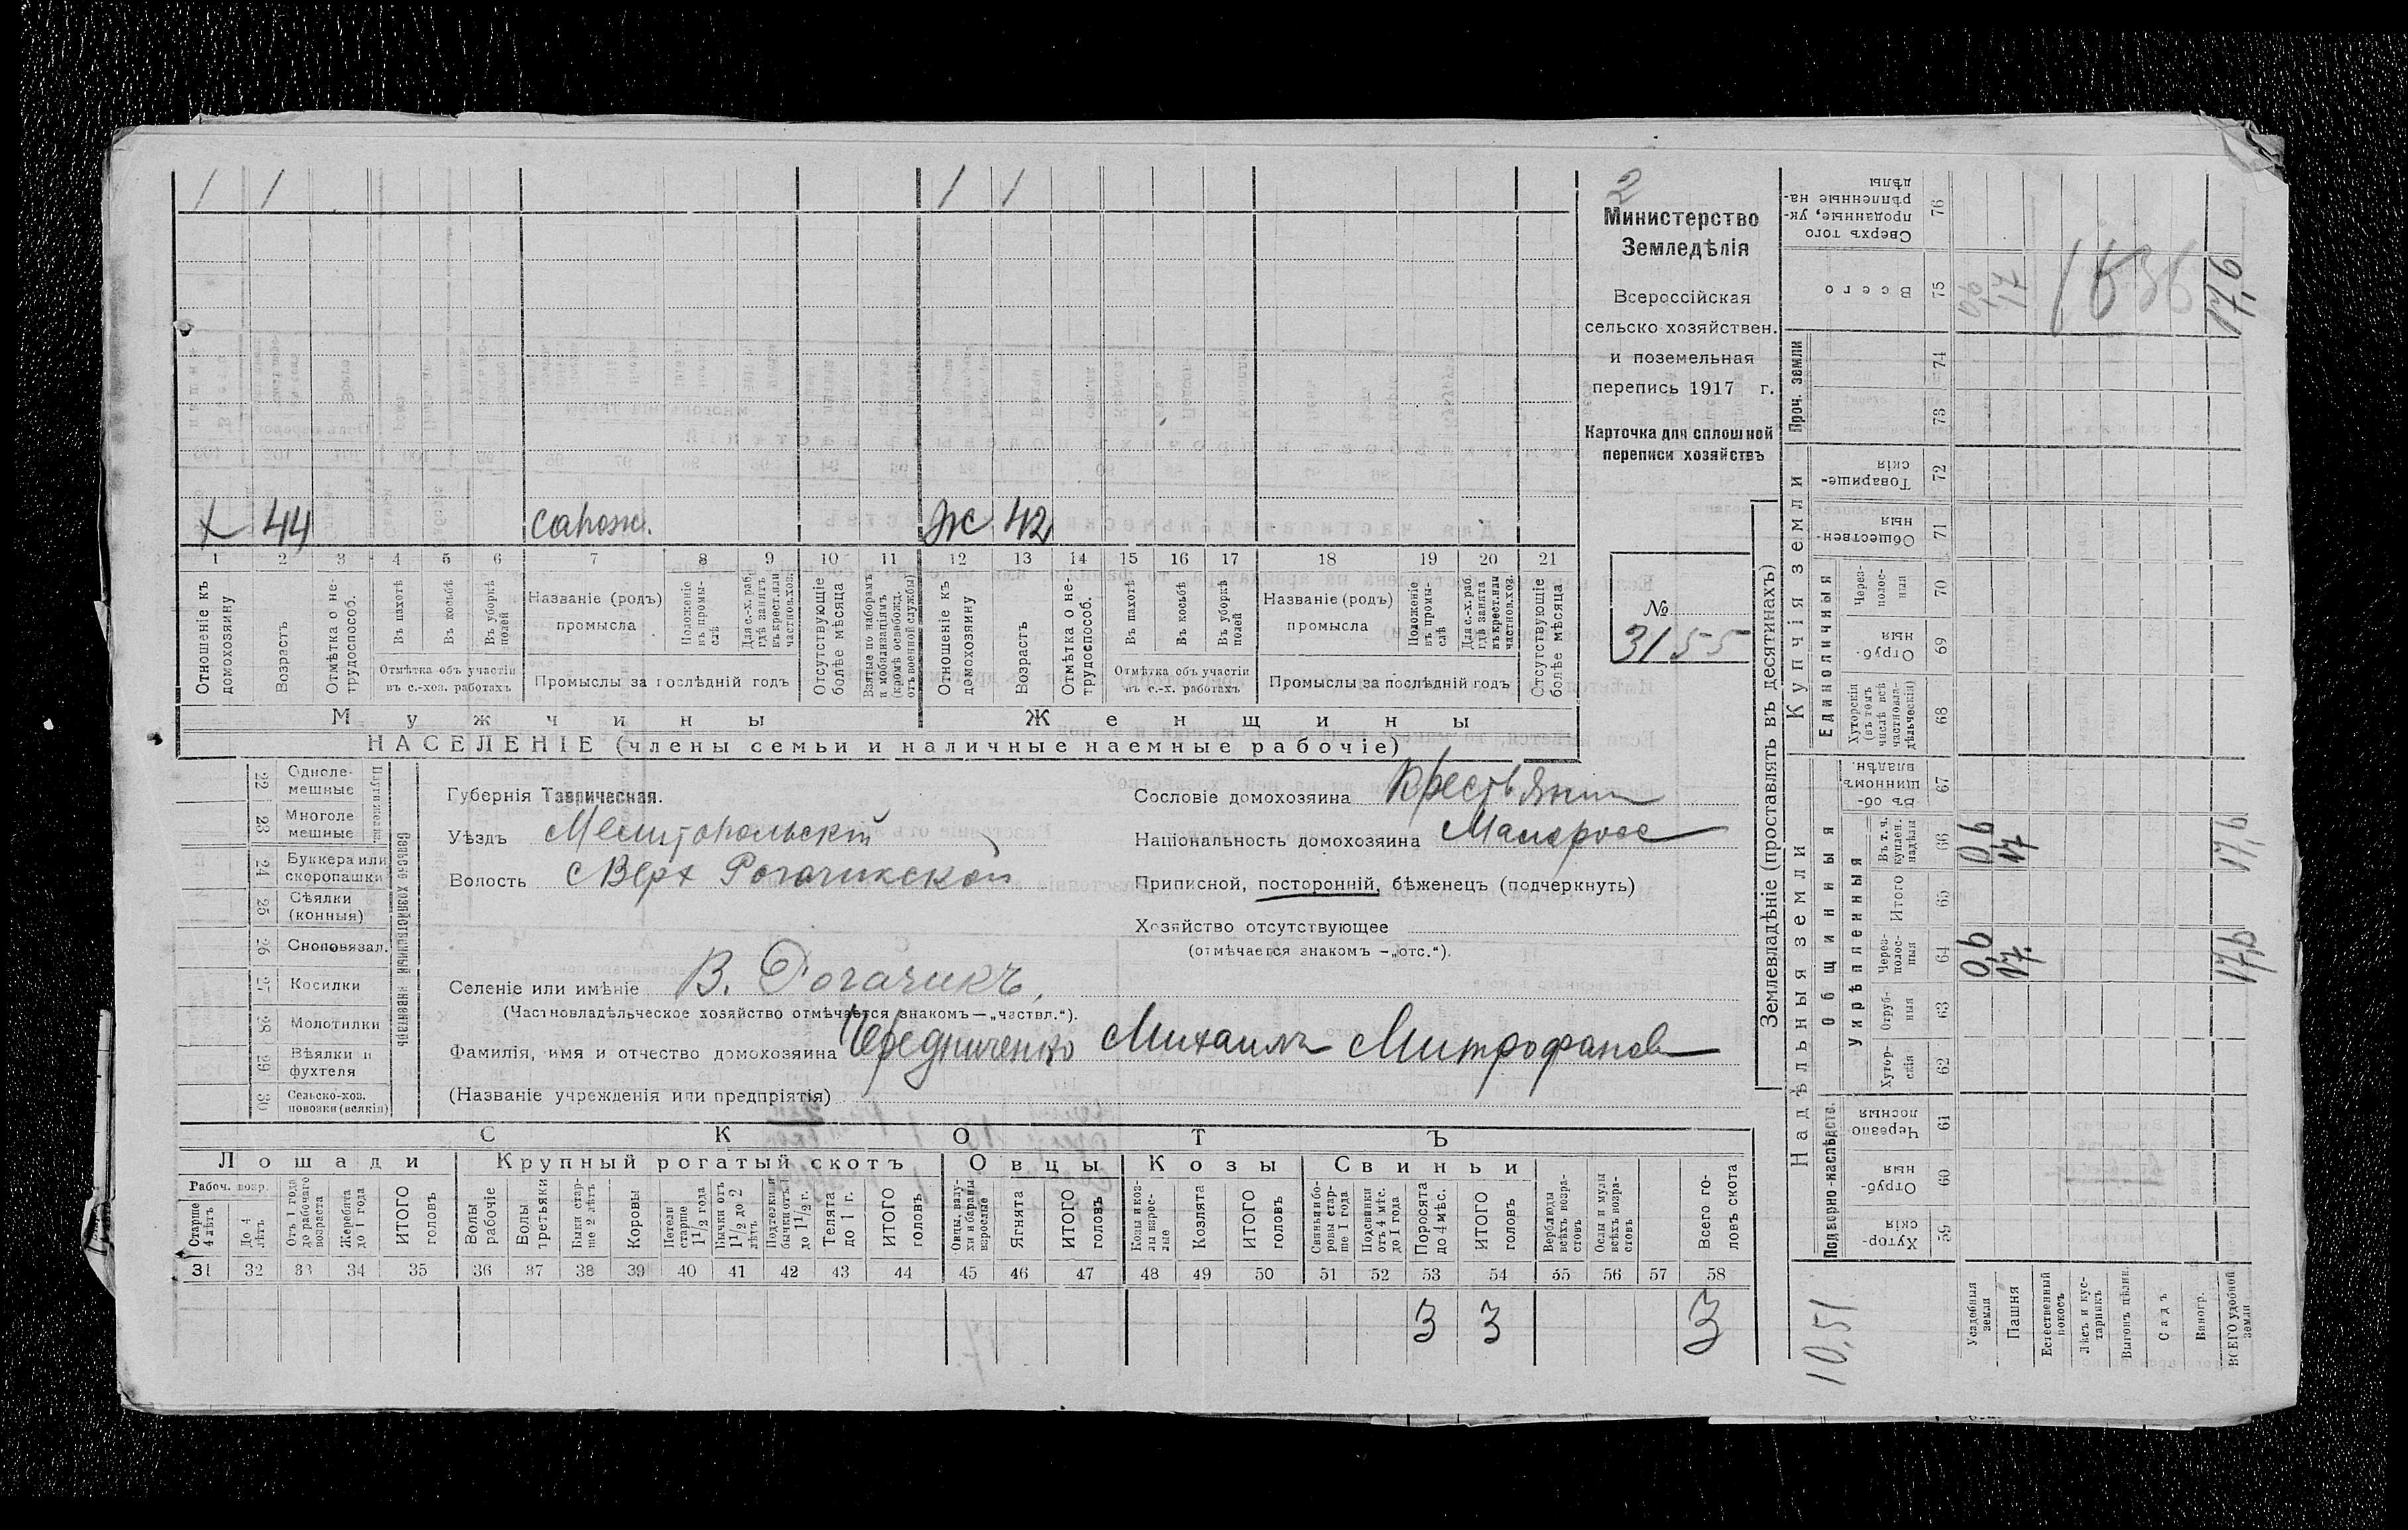 1 1 1 1
х 44 сапожн. Ж 42
1 2 3 4 5 6 7 8 9 10 11 12 13 14 15 16 17 18 19 20 21
Отношеніе къ домохозяину
Возрастъ
Отмѣтка о не-трудоспособ.
Въ пахотѣ
Въ косьбѣ
Въ уборкѣ полей
Отмѣтка объ участіи
въ с.-хоз. работахъ
Названіе (родъ)
промысла
Положеніе въ промы-слѣ
Для с.-х. раб. гдѣ занятъ въ крест. или частнов. хоз.
Промыслы за послѣдній годъ
Отсутствующіе болѣе мѣсяца
Взятые по наборамъ и мобилизаціямъ (кромѣ освобожд. отъ военной службы)
Отношеніе къ домохозяину
Возрастъ
Отмѣтка о не-трудоспособ.
Въ пахотѣ
Въ косьбѣ
Въ уборкѣ полей
Отмѣтка объ участіи
въ с.-х. работахъ
Названіе (родъ)
промысла
Положеніе въ промы-слѣ
Для с.-х. раб. гдѣ занята въ крест. или частнов. хоз.
Промыслы за послѣдній годъ
Отсутствующіе болѣе мѣсяца
Мужчины Женщины
НАСЕЛЕНІЕ (члены семьи и наличные наемные рабочіе)
2
Министерство
Земледѣлія
Всероссійская
сельско хозяйствен.
и поземельная
перепись 1917 г.
Карточка для сплошной
переписи хозяйствъ
№
3155
Сельско хозяйственный инвентарь
22 Одноле-мешные
23 Многоле мешные
24 Буккера или скоропашки
25 Сѣялки (конныя)
26 Сноповязал.
27 Косилки
28 Молотилки
29 Вѣялки и фухтеля
30 Сельско-хоз. повозки (всякія)
Губернія Таврическая.
Уѣздъ Мелитопольскій
Волость Верх Рогачикской
Селеніе или имѣніе В. Рогачикъ,
(Частновладѣльческое хозяйство отмѣчается знакомъ — „частвл.“).
Фамилія, имя и отчество домохозяина Чередниченко Михаилъ Митрофанов
(Названіе учрежденія или предпріятія)
Сословіе домохозяина Крестьянин
Національность домохозяина Малоросс
Приписной, посторонній, бѣженецъ (подчеркнуть)
Хозяйство отсутствующее
(отмѣчается знакомъ — „отс.“).
СКОТЪ
Лошади Крупный рогатый скотъ Овцы Козы Свиньи
Рабоч. возр.
Старше 4 лѣтъ
До 4 лѣтъ
Отъ 1 года до рабочаго возраста
Жеребята до 1 года
ИТОГО головъ
Волы рабочіе
Волы третьяки
Быки стар-ше 2 лѣтъ
Коровы
Нетели старше 1 1/2 года
Бычки отъ 1 1/2 до 2 лѣтъ
Подтелки и бычки отъ 1 до 1 1/2 г.
Телята до 1 г.
ИТОГО головъ
Овцы, валу-хи и бараны взрослые
Ягнята
ИТОГО головъ
Козы и коз-лы взрос-лые
Козлята
ИТОГО головъ
Свиньи и бо-ровы стар-ше 1 года
Подсвинки отъ 4 мѣс. до 1 года
Поросята до 4 мѣс.
ИТОГО головъ
Верблюды всѣхъ возра-стовъ
Ослы и мулы всѣхъ возра-стовъ
Всего го-ловъ скота
31 32 33 34 35 36 37 38 39 40 41 42 43 44 45 46 47 48 49 50 51 52 53 54 55 56 57 58
3 3 3
Землевладѣніе (проставлять въ десятинахъ)
Надѣльныя земли
Купчія земли
Проч. земли
Подворно-наслѣдств.
Общинныя
Укрѣпленныя
Единоличныя
Хутор-скія 59
Отруб-ныя 60
Черезпо-лосныя 61
Хутор-скія 62
Отруб-ныя 63
Через-полос-ныя 64
Итого 65
Въ т. ч. куплен. надѣлы 66
Въ об-щинномъ владѣн. 67
Хуторскія (въ томъ числѣ всѣ частновла-дѣльческія) 68
Отруб-ныя 69
Через-полос-ныя 70
Обществен-ныя 71
Товарище-скія 72
73
74
Всего 75
Сверхъ того проданные, ук-рѣпленные на-дѣлы 76
Усадебныя земли 0,6 0,6 0,6
Пашня 17. 17 17
Естественный покосъ
Лѣсъ и кус-тарникъ
Выгонъ цѣлин.
Садъ
Виногр.
ВСЕГО удобной земли 17,6 17,6 17,6
1536
10,51